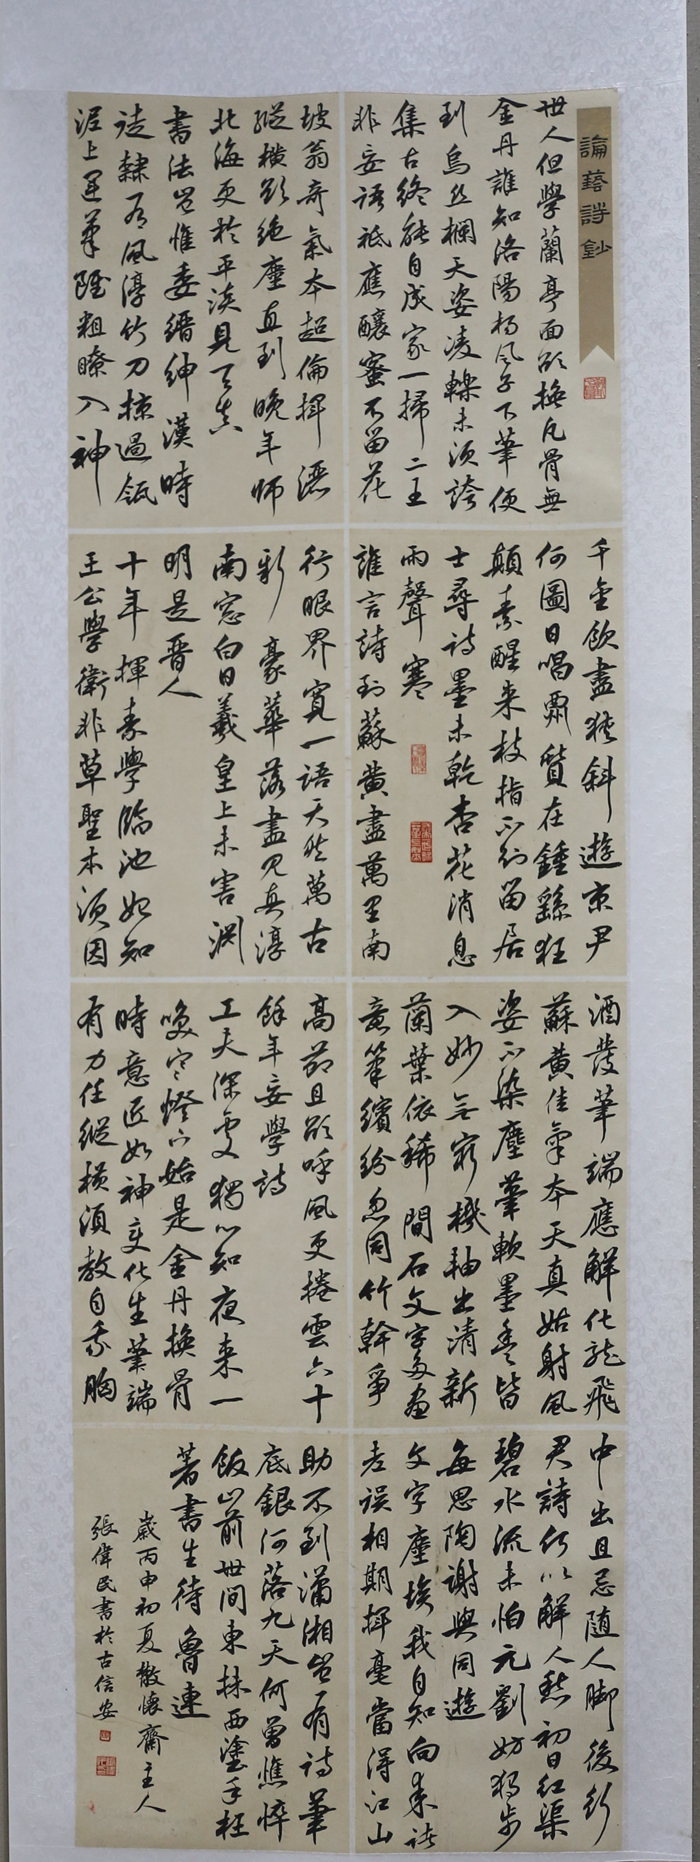 論藝詩鈔
世人但學蘭亭面欲換凡骨無
金丹誰知洛陽楊風子下筆便
到烏絲欄天姿凌轢未須誇
集古終能自成家一掃二王
非妄語祇應釀蜜不留花
坡翁奇氣本超倫揮灑
縱橫欲絕塵直到晚年師
北海更於平淡見天真
書法豈惟委縉紳漢時
徒隸有風淳竹刀掠過瓴
泥上運筆雖粗暸入神
千金飲盡狹斜遊京尹
何圖日唱酬質在鍾繇狂
顛素醒來枝指不約留居
士尋詩墨未乾杏花消息
雨聲寒
誰言詩到蘇黃盡萬里南
行眼界寬一語天然萬古
新豪華落盡見真淳
南窗白日羲皇上未害淵
明是晉人
十年揮素學臨池始知
王公學衛非草聖本須因
酒發筆端應解化龍飛
蘇黃佳氣本天真姑射風
姿不染塵筆軟墨豐皆
入妙無窮機軸出清新
蘭葉依稀間石文字多畫
意筆繽紛忽同竹幹爭
高節且欲呼風更捲雲六十
餘年妄學詩
工夫深處獨心知夜來一
喚寒燈下始是金丹換骨
時意匠如神變化生筆端
有力任縱橫須教自我胸
中出且忌隨人腳後行
君詩何以解人愁初日紅渠
碧水流未怕元劉妨獨步
每思陶謝與同遊
文字塵埃我自知向來諸
老誤相期揮毫當得江山
助不到瀟湘豈有詩筆
底銀河落九天何曾憔悴
飯山前世間東抹西塗手枉
著書生待魯連
歲丙申初夏散懷齋主人
張偉民書於古信安